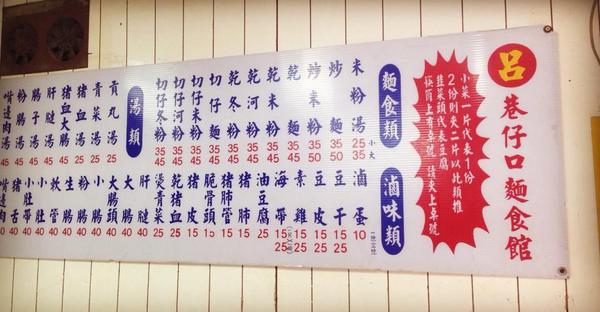 呂
巷仔口麵食館
小菜一片代表1份
2份則夾二片以此類推
韮菜頭代表豆腐
筷筒上有桌號 請夾上桌號
麵食類
米粉湯 小25 大35
炒麵 50
炒米粉 50
乾麵 35 45
乾米粉 35 45
乾河粉 35 45
乾冬粉 35 45
切仔麵 35 45
切仔米粉 35 45
切仔河粉 35 45
切仔冬粉 35 45
湯類
貢丸湯 25
青菜湯 25
豬血湯 25
豬血大腸 45
肝腱湯 45
腸子湯 45
粉腸湯 45
嘴邊肉湯 45
滷味類
滷蛋 10
豆干 15 25
豆皮 15 25
素雞 15 25
海帶 15 25
油豆腐
豬肺管
脆骨頭 15
豬皮 15
豬血
燙青菜
肝腱 40
大腸頭 40
小腸 40
粉腸 40
生腸 40
軟管 40
小肚 40
豬舌 40
嘴邊肉 40